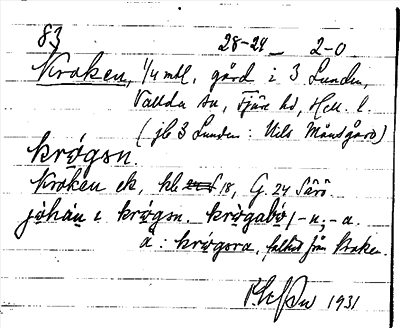 83 28-24 2-0
Kroken, 1/4 mtl, gård i 3 Lunden,
Vallda sn, Fjäre hd, Hall. l.
(jb 3 Lunden: Nils Månsgård)
krǫ́gsn.
Kroken ek, kbl 18, G. 24 Särö.
johán i krǫ́gsn. krǫ̀gabó/-n, -a.
a: krǫ́gsra, från Kroken.
1931